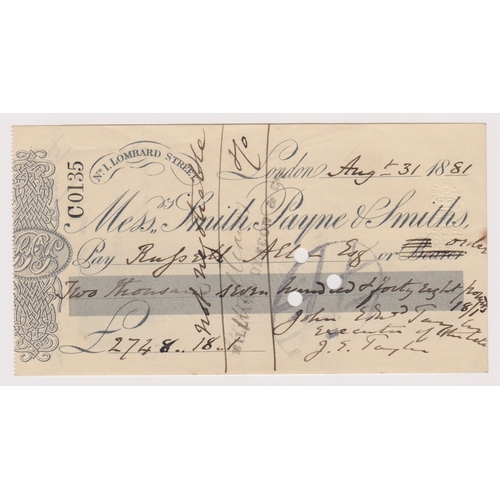 C0135
No. 1, LOMBARD STREET
London Augt 31 1881
Messrs Smith, Payne & Smiths,
Pay Russell Allen Esq or Bearer order
Two thousand seven hundred & forty eight pounds 18/1
£2748..18.1
John Edwd Taylor
Executor of the late
J. E. Taylor
not negotiable
& Co